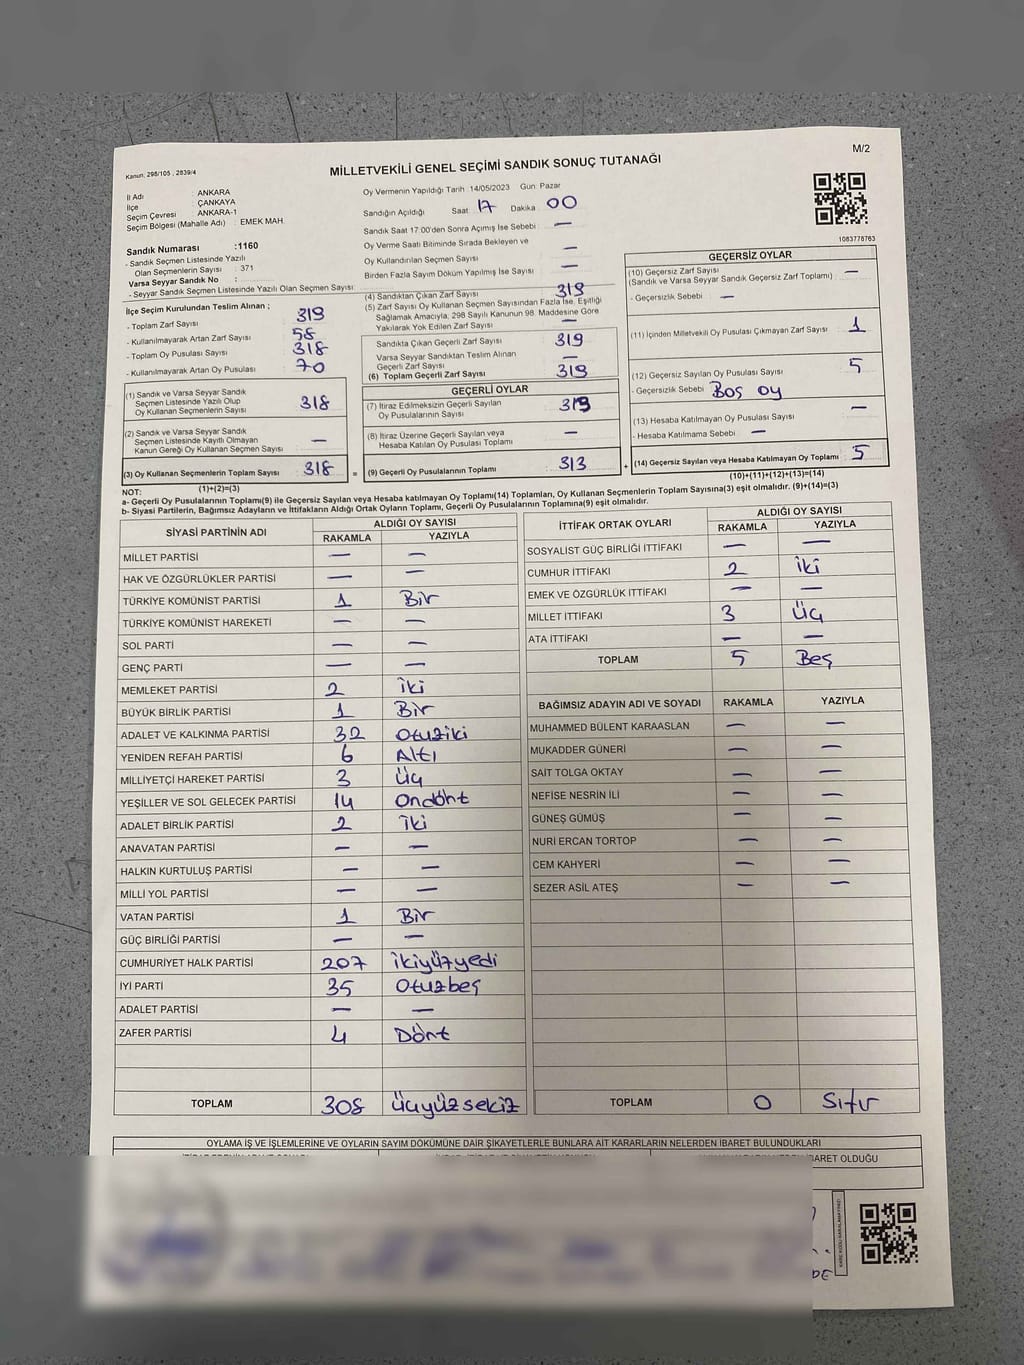 M/2
Kanun: 298/105 , 2839/4
MİLLETVEKİLİ GENEL SEÇİMİ SANDIK SONUÇ TUTANAĞI
İl Adı : ANKARA
İlçe : ÇANKAYA
Seçim Çevresi ANKARA-1
Seçim Bölgesi (Mahalle Adı) : EMEK MAH.
Sandık Numarası :1160
- Sandık Seçmen Listesinde Yazılı
Olan Seçmenlerin Sayısı : 371
Varsa Seyyar Sandık No :
- Seyyar Sandık Seçmen Listesinde Yazılı Olan Seçmen Sayısı:
Oy Vermenin Yapıldığı Tarih :14/05/2023 Gün: Pazar
Sandığın Açıldığı Saat 17 Dakika 00
Sandık Saat 17:00'den Sonra Açımış İse Sebebi : —
Oy Verme Saati Bitiminde Sırada Bekleyen ve
Oy Kullandırılan Seçmen Sayısı —
Birden Fazla Sayım Döküm Yapılmış İse Sayısı —
1083778763
İlçe Seçim Kurulundan Teslim Alınan ;
- Toplam Zarf Sayısı 319
- Kullanılmayarak Artan Zarf Sayısı 58
- Toplam Oy Pusulası Sayısı 318
- Kullanılmayarak Artan Oy Pusulası 70
(1) Sandık ve Varsa Seyyar Sandık
Seçmen Listesinde Yazılı Olup
Oy Kullanan Seçmenlerin Sayısı 318
(2) Sandık ve Varsa Seyyar Sandık
Seçmen Listesinde Kayıtlı Olmayan
Kanun Gereği Oy Kullanan Seçmen Sayısı —
(3) Oy Kullanan Seçmenlerin Toplam Sayısı 318 =
(1)+(2)=(3)
(4) Sandıktan Çıkan Zarf Sayısı 319
(5) Zarf Sayısı Oy Kullanan Seçmen Sayısından Fazla İse, Eşitliği
Sağlamak Amacıyla; 298 Sayılı Kanunun 98. Maddesine Göre
Yakılarak Yok Edilen Zarf Sayısı —
Sandıkta Çıkan Geçerli Zarf Sayısı 319
Varsa Seyyar Sandıktan Teslim Alınan
Geçerli Zarf Sayısı —
(6) Toplam Geçerli Zarf Sayısı 319
GEÇERLİ OYLAR
(7) İtiraz Edilmeksizin Geçerli Sayılan
Oy Pusulalarının Sayısı
(8) İtiraz Üzerine Geçerli Sayılan veya
Hesaba Katılan Oy Pusulası Toplamı —
(9) Geçerli Oy Pusulalarının Toplamı : 313 +
GEÇERSİZ OYLAR
(10) Geçersiz Zarf Sayısı —
(Sandık ve Varsa Seyyar Sandık Geçersiz Zarf Toplamı)
- Geçersizlik Sebebi : —
(11) İçinden Milletvekili Oy Pusulası Çıkmayan Zarf Sayısı 1
(12) Geçersiz Sayılan Oy Pusulası Sayısı 5
- Geçersizlik Sebebi : Boş oy
(13) Hesaba Katılmayan Oy Pusulası Sayısı —
- Hesaba Katılmama Sebebi : —
(14) Geçersiz Sayılan veya Hesaba Katılmayan Oy Toplamı 5
(10)+(11)+(12)+(13)=(14)
NOT:
a- Geçerli Oy Pusulalarının Toplamı(9) ile Geçersiz Sayılan veya Hesaba katılmayan Oy Toplamı(14) Toplamları, Oy Kullanan Seçmenlerin Toplam Sayısına(3) eşit olmalıdır. (9)+(14)=(3)
b- Siyasi Partilerin, Bağımsız Adayların ve İttifakların Aldığı Ortak Oyların Toplamı, Geçerli Oy Pusulalarının Toplamına(9) eşit olmalıdır.
SİYASİ PARTİNİN ADI ALDIĞI OY SAYISI
RAKAMLA YAZIYLA
MİLLET PARTİSİ — —
HAK VE ÖZGÜRLÜKLER PARTİSİ — —
TÜRKİYE KOMÜNİST PARTİSİ 1 Bir
TÜRKİYE KOMÜNİST HAREKETİ — —
SOL PARTİ — —
GENÇ PARTİ — —
MEMLEKET PARTİSİ 2 iki
BÜYÜK BİRLİK PARTİSİ 1 Bir
ADALET VE KALKINMA PARTİSİ 32 Otuziki
YENİDEN REFAH PARTİSİ 6 Altı
MİLLİYETÇİ HAREKET PARTİSİ 3 üç
YEŞİLLER VE SOL GELECEK PARTİSİ 14 Ondört
ADALET BİRLİK PARTİSİ 2 iki
ANAVATAN PARTİSİ — —
HALKIN KURTULUŞ PARTİSİ — —
MİLLİ YOL PARTİSİ — —
VATAN PARTİSİ 1 Bir
GÜÇ BİRLİĞİ PARTİSİ — —
CUMHURİYET HALK PARTİSİ 207 ikiyüzyedi
İYİ PARTİ 35 Otuzbeş
ADALET PARTİSİ — —
ZAFER PARTİSİ 4 Dört
TOPLAM 308 üçyüzsekiz
İTTİFAK ORTAK OYLARI ALDIĞI OY SAYISI
RAKAMLA YAZIYLA
SOSYALİST GÜÇ BİRLİĞİ İTTİFAKI — —
CUMHUR İTTİFAKI 2 iki
EMEK VE ÖZGÜRLÜK İTTİFAKI — —
MİLLET İTTİFAKI 3 üç
ATA İTTİFAKI — —
TOPLAM 5 Beş
BAĞIMSIZ ADAYIN ADI VE SOYADI RAKAMLA YAZIYLA
MUHAMMED BÜLENT KARAASLAN — —
MUKADDER GÜNERİ — —
SAİT TOLGA OKTAY — —
NEFİSE NESRİN İLİ — —
GÜNEŞ GÜMÜŞ — —
NURİ ERCAN TORTOP — —
CEM KAHYERİ — —
SEZER ASİL ATEŞ — —
TOPLAM 0 Sıfır
OYLAMA İŞ VE İŞLEMLERİNE VE OYLARIN SAYIM DÖKÜMÜNE DAİR ŞİKAYETLERLE BUNLARA AİT KARARLARIN NELERDEN İBARET BULUNDUKLARI
OLDUĞU